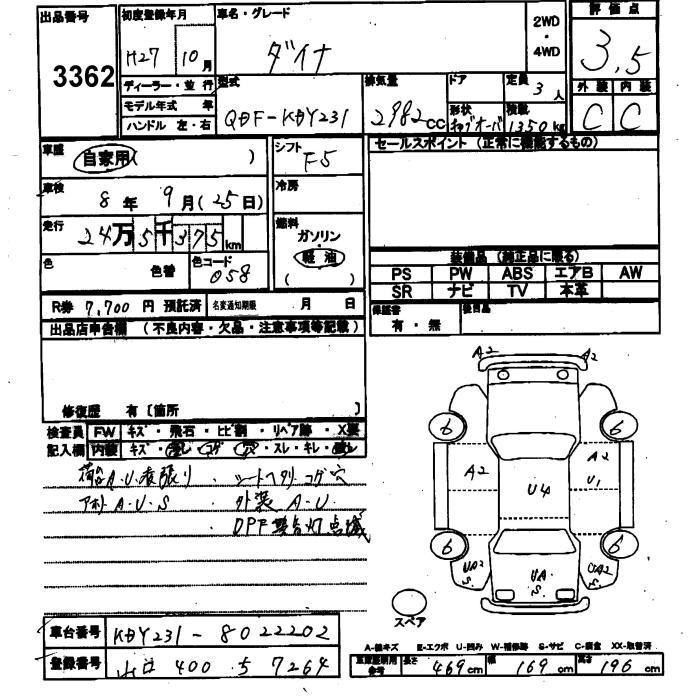 出品番号 3362
初度登録年月 H27 10月
車名・グレード ダイナ
2WD・4WD
評価点 3.5
外装 C 内装 C
ディーラー・並行
モデル年式 年
ハンドル 左・右
型式 QDF-KDY231
排気量 2982cc
ドア
形状
定員 3人
積載 1350kg
車歴 自家用( )
シフト F5
セールスポイント (正常に機能するもの)
車検 8年 9月(25日)
冷房
走行 24万5千375km
燃料 ガソリン
軽油
( )
色 色替 色コード 058
装備品 (純正品に限る)
PS PW ABS エアB AW
SR ナビ TV 本革
R券 7,700円 預託済 名変通知期限 月 日
保証書 有・無
後日品
出品店申告欄 (不良内容・欠品・注意事項等記載)
修復歴 有〔箇所 〕
検査員記入欄
FW キズ・飛石・ヒビ割・リペア跡・X要
内装 キズ・汚れ・コゲ・穴・スレ・キレ
A・U・直張り シートヘタリ コゲ穴
アオリ A・U・S 外装 A・U
DPF警告灯点滅
A2 A2
6 6
A2 A2
U4 U1
6 6
UA2 S UA S UA2 S
スペア
車台番号 KDY231-8022202
登録番号 山口 400 す 7264
A-線キズ E-エクボ U-凹み W-補修跡 S-サビ C-腐食 XX-取替済
車庫証明用参考 長さ 469cm 幅 169cm 高さ 196cm